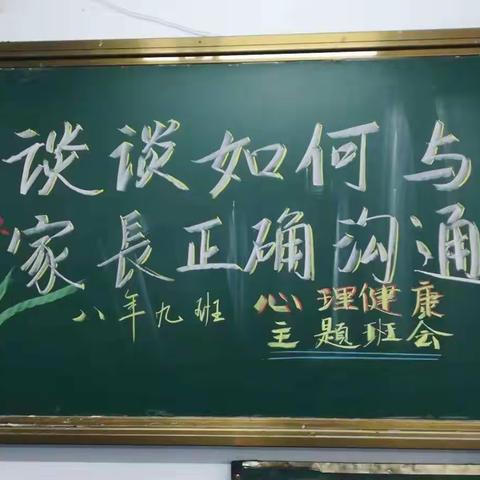 谈谈如何与
家長正确沟通
八年九班
心理健康
主题班会